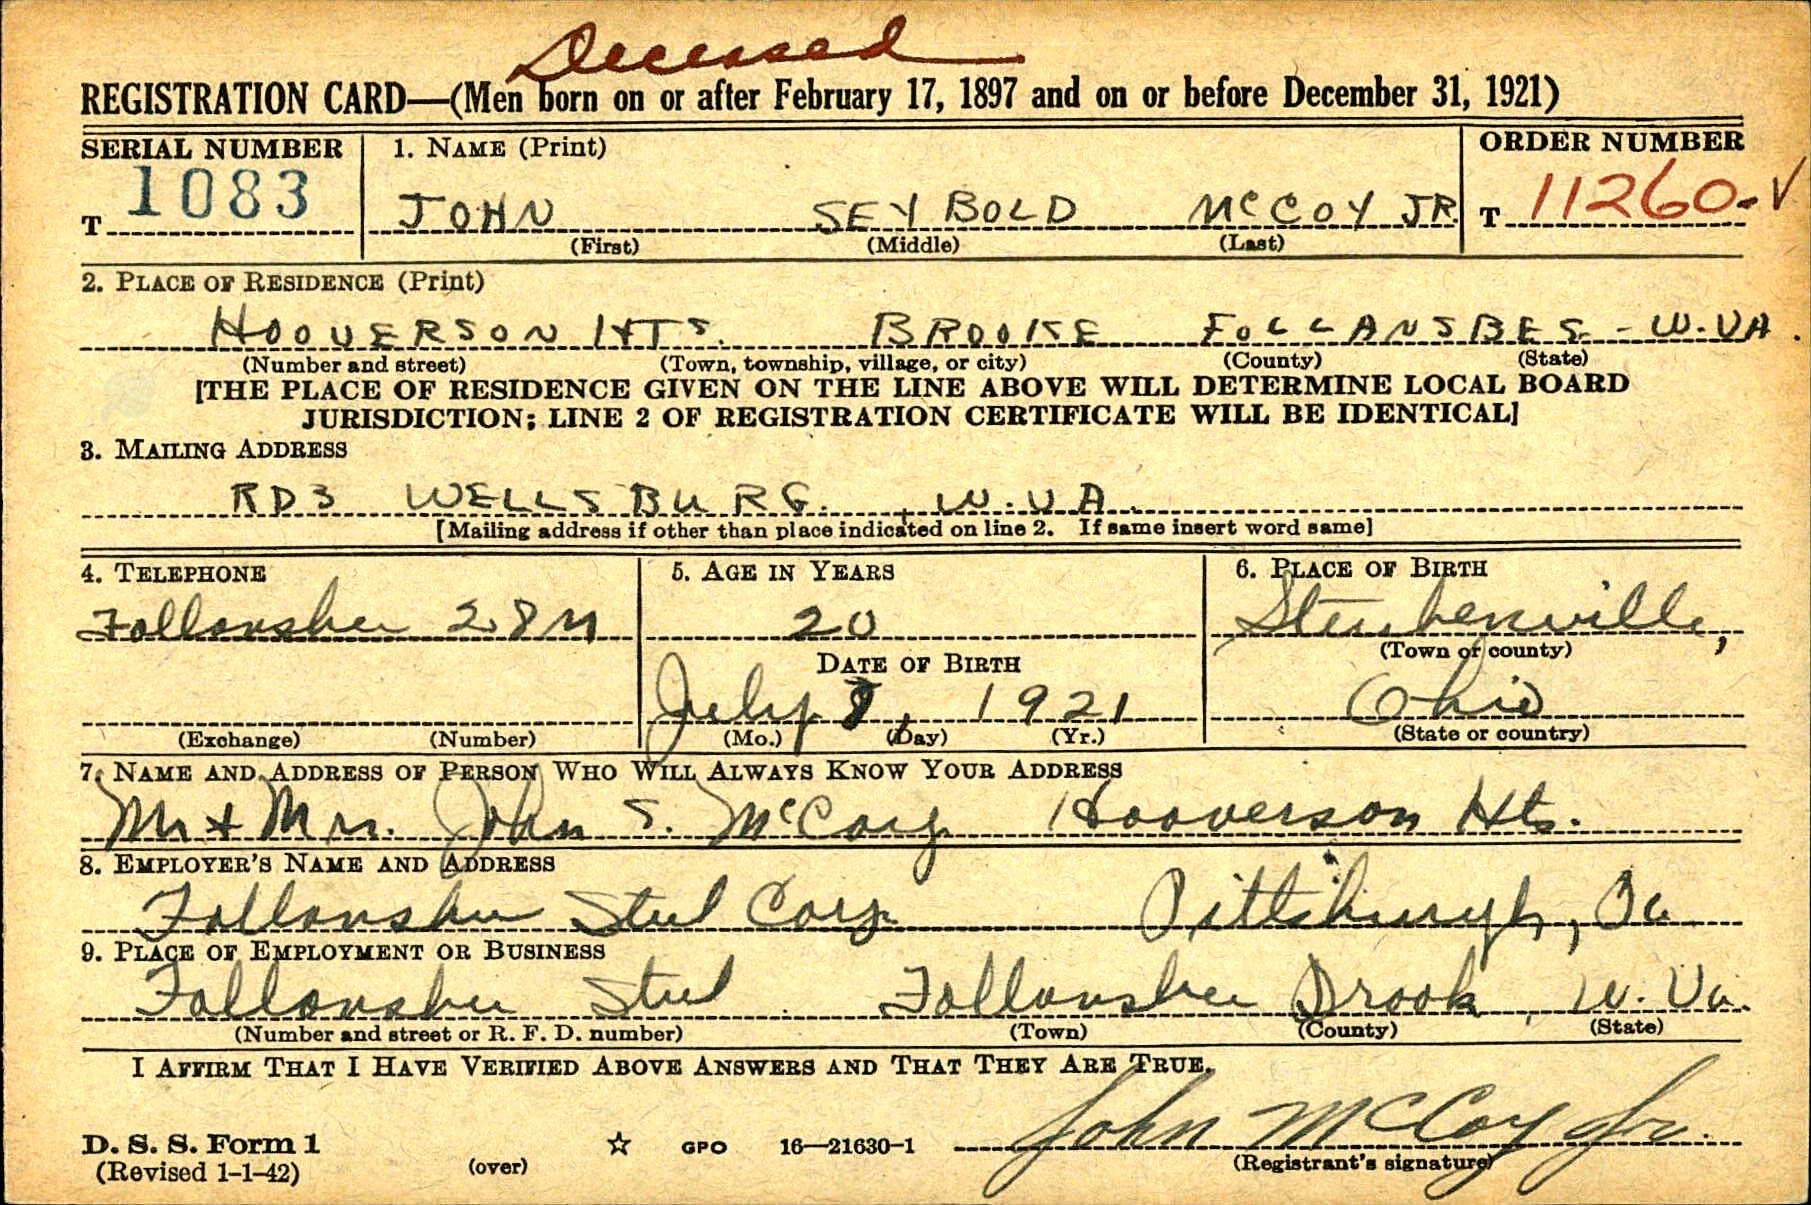 Deceased
REGISTRATION CARD—(Men born on or after February 17, 1897 and on or before December 31, 1921)
SERIAL NUMBER 1. NAME (Print) ORDER NUMBER
T 1083 JOHN SEYBOLD McCOY JR. T 11260-V
(First) (Middle) (Last)
2. PLACE OF RESIDENCE (Print)
HOOVERSON HTS. BROOKE FOLLANSBEE - W.VA.
(Number and street) (Town, township, village, or city) (County) (State)
[THE PLACE OF RESIDENCE GIVEN ON THE LINE ABOVE WILL DETERMINE LOCAL BOARD
JURISDICTION; LINE 2 OF REGISTRATION CERTIFICATE WILL BE IDENTICAL]
3. MAILING ADDRESS
RD3 WELLSBURG., W.VA.
[Mailing address if other than place indicated on line 2. If same insert word same]
4. TELEPHONE 5. AGE IN YEARS 6. PLACE OF BIRTH
Follansbee 28M 20 Steubenville,
DATE OF BIRTH (Town or county)
July 8, 1921 Ohio
(Exchange) (Number) (Mo.) (Day) (Yr.) (State or country)
7. NAME AND ADDRESS OF PERSON WHO WILL ALWAYS KNOW YOUR ADDRESS
Mr + Mrs. John S. McCoy Hooverson Hts.
8. EMPLOYER'S NAME AND ADDRESS
Follansbee Steel Corp. Pittsburgh, Pa
9. PLACE OF EMPLOYMENT OR BUSINESS
Follansbee Steel Follansbee Brook, W. Va.
(Number and street or R. F. D. number) (Town) (County) (State)
I AFFIRM THAT I HAVE VERIFIED ABOVE ANSWERS AND THAT THEY ARE TRUE.
John McCoy Jr.
D. S. S. Form 1 ☆ GPO 16—21630-1
(Revised 1-1-42) (over) (Registrant's signature)